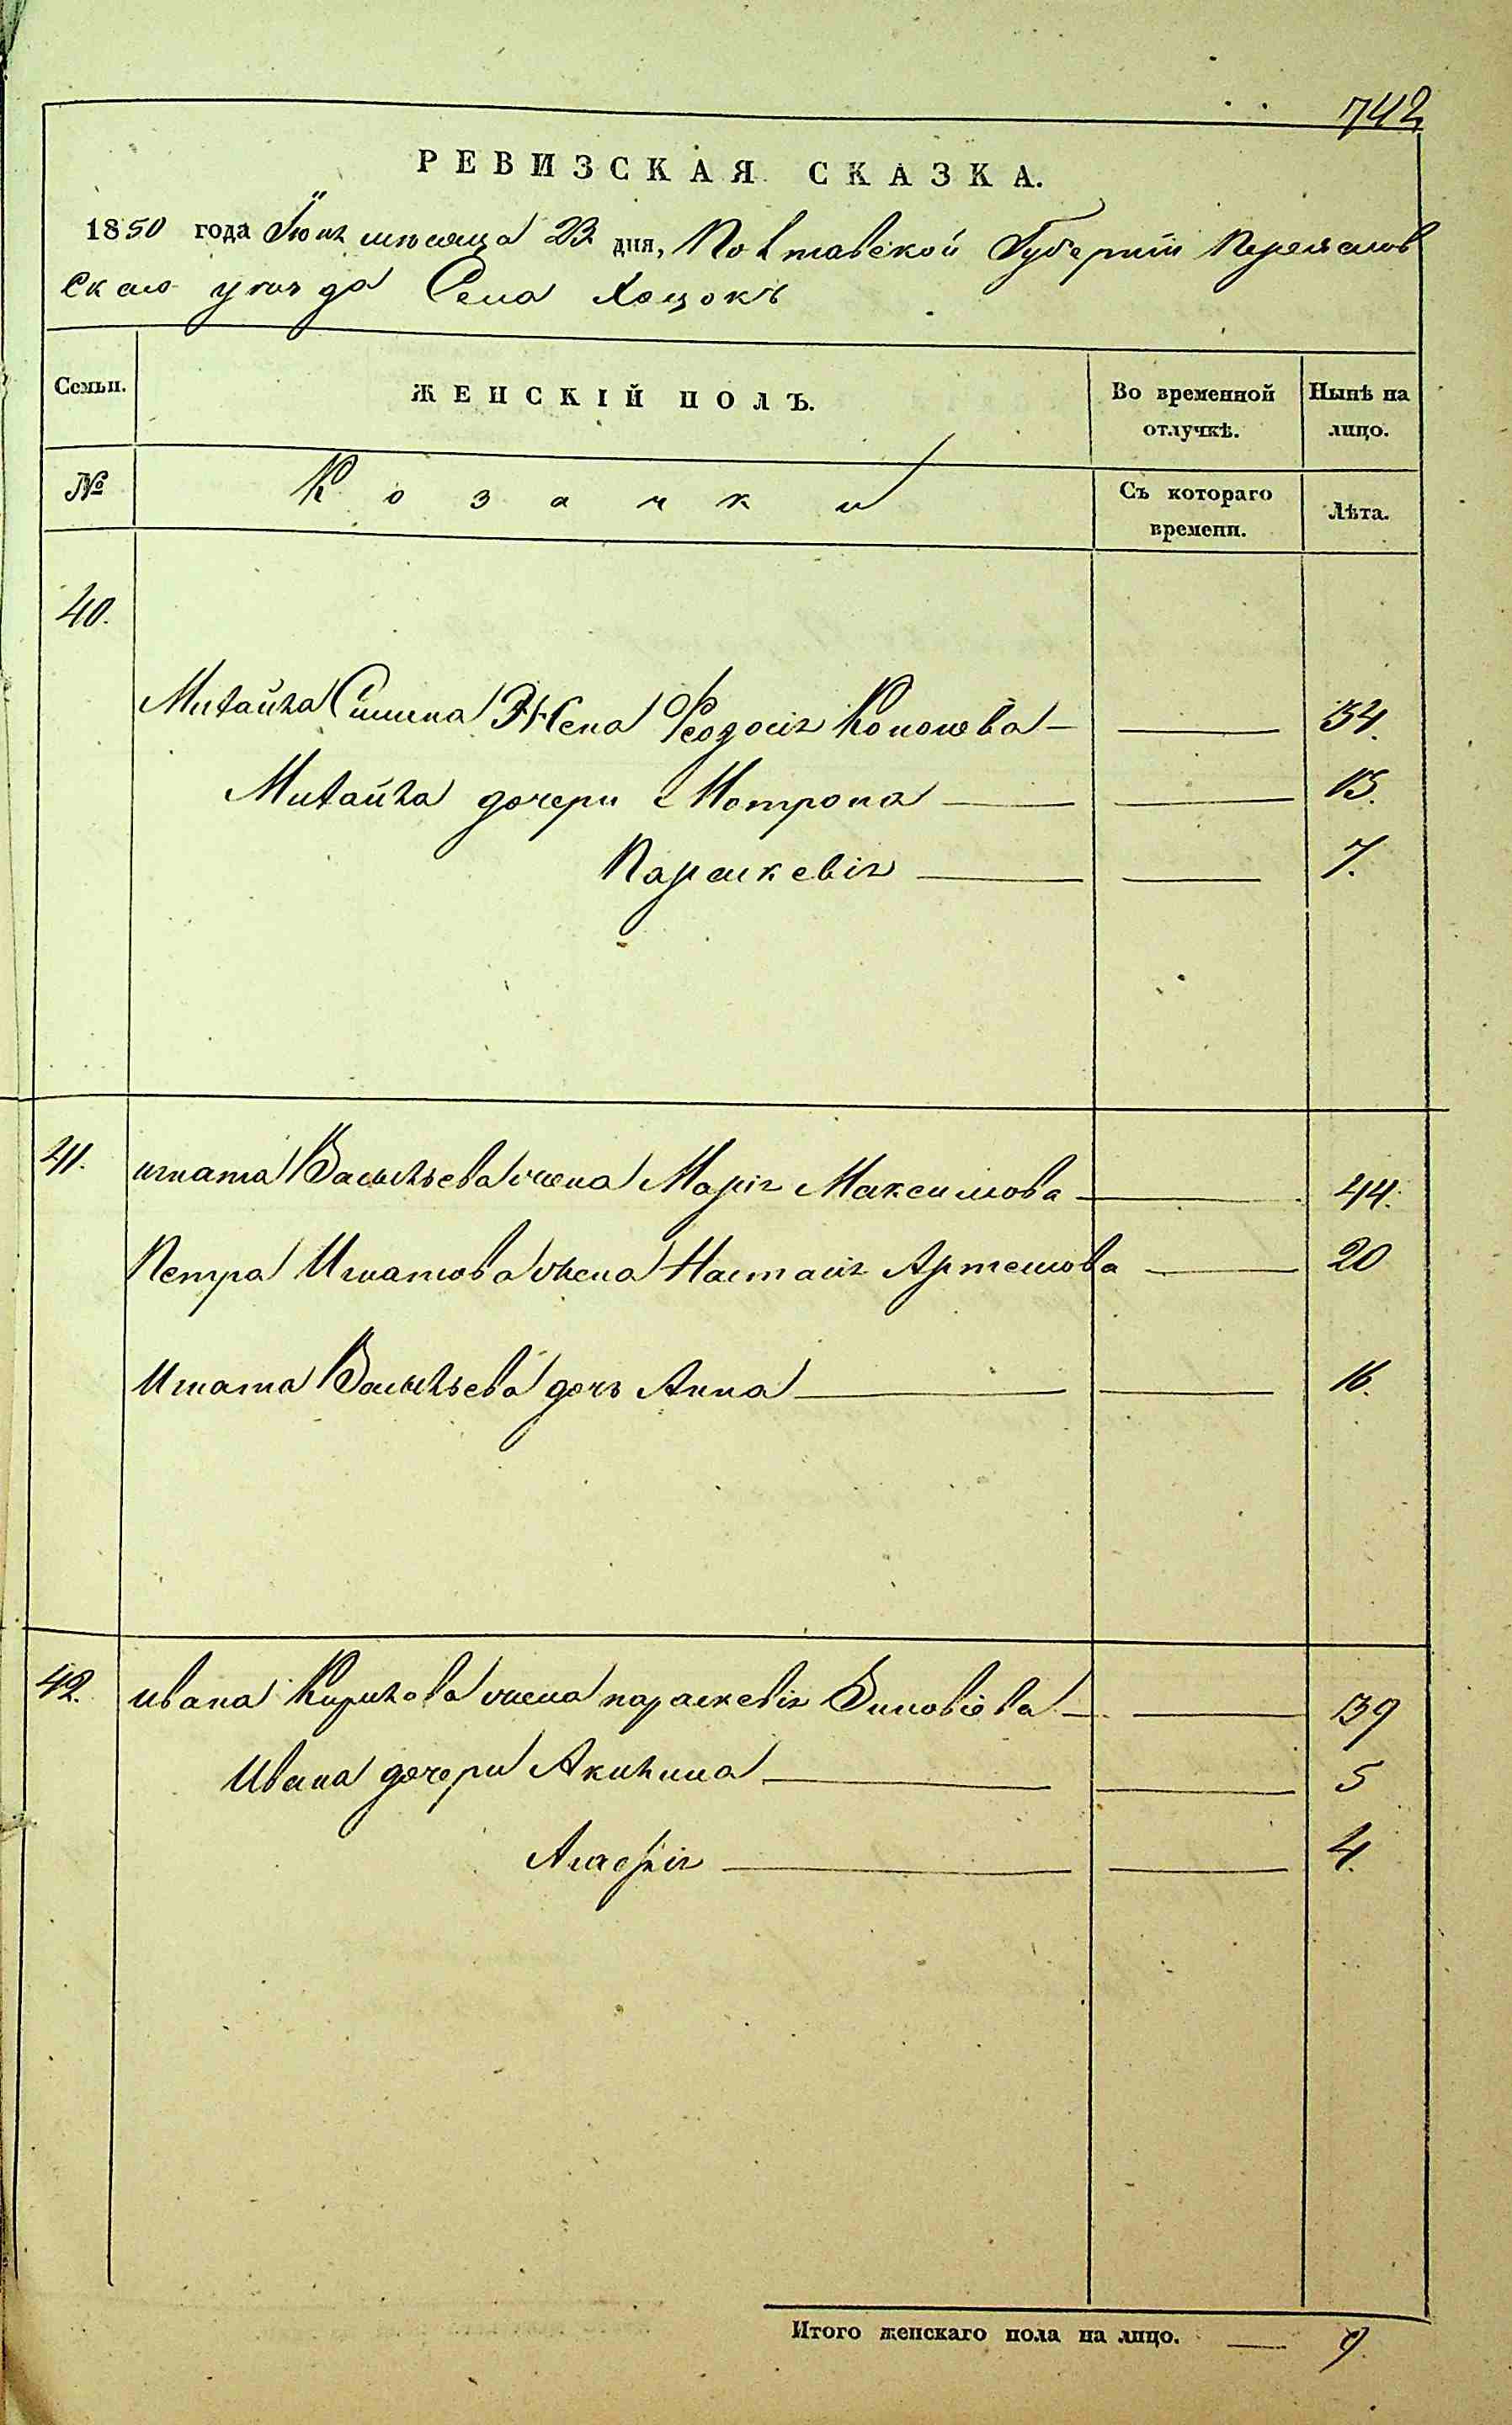 742
РЕВИЗСКАЯ СКАЗКА.
1850 года Іюня мѣсяца 23 дня, Полтавской Губерніи Переяслов
скаго уѣзда Села Хоцокъ
Семьи.
ЖЕНСКІЙ ПОЛЪ.
Во временной отлучкѣ.
Нынѣ на лицо.
№
Козачки
Съ котораго времени.
Лѣта.
40.
Михайла Симина Жена Феодосія Кононова — — 34.
Михайла дочери Мотрона — — 13.
Параскевія — — 7.
41.
игната Васильева жена Марія Максимова — 44.
Петра Игнатова жена Настасія Артемова — 20
Игната Васильева дочь Анна — — 16.
42.
ивана Кирилова жена параскевія Зиновіева — — 39
Ивана дочери Акилина — — 5
Агафія — — 4.
Итого женскаго пола на лицо. — 9.